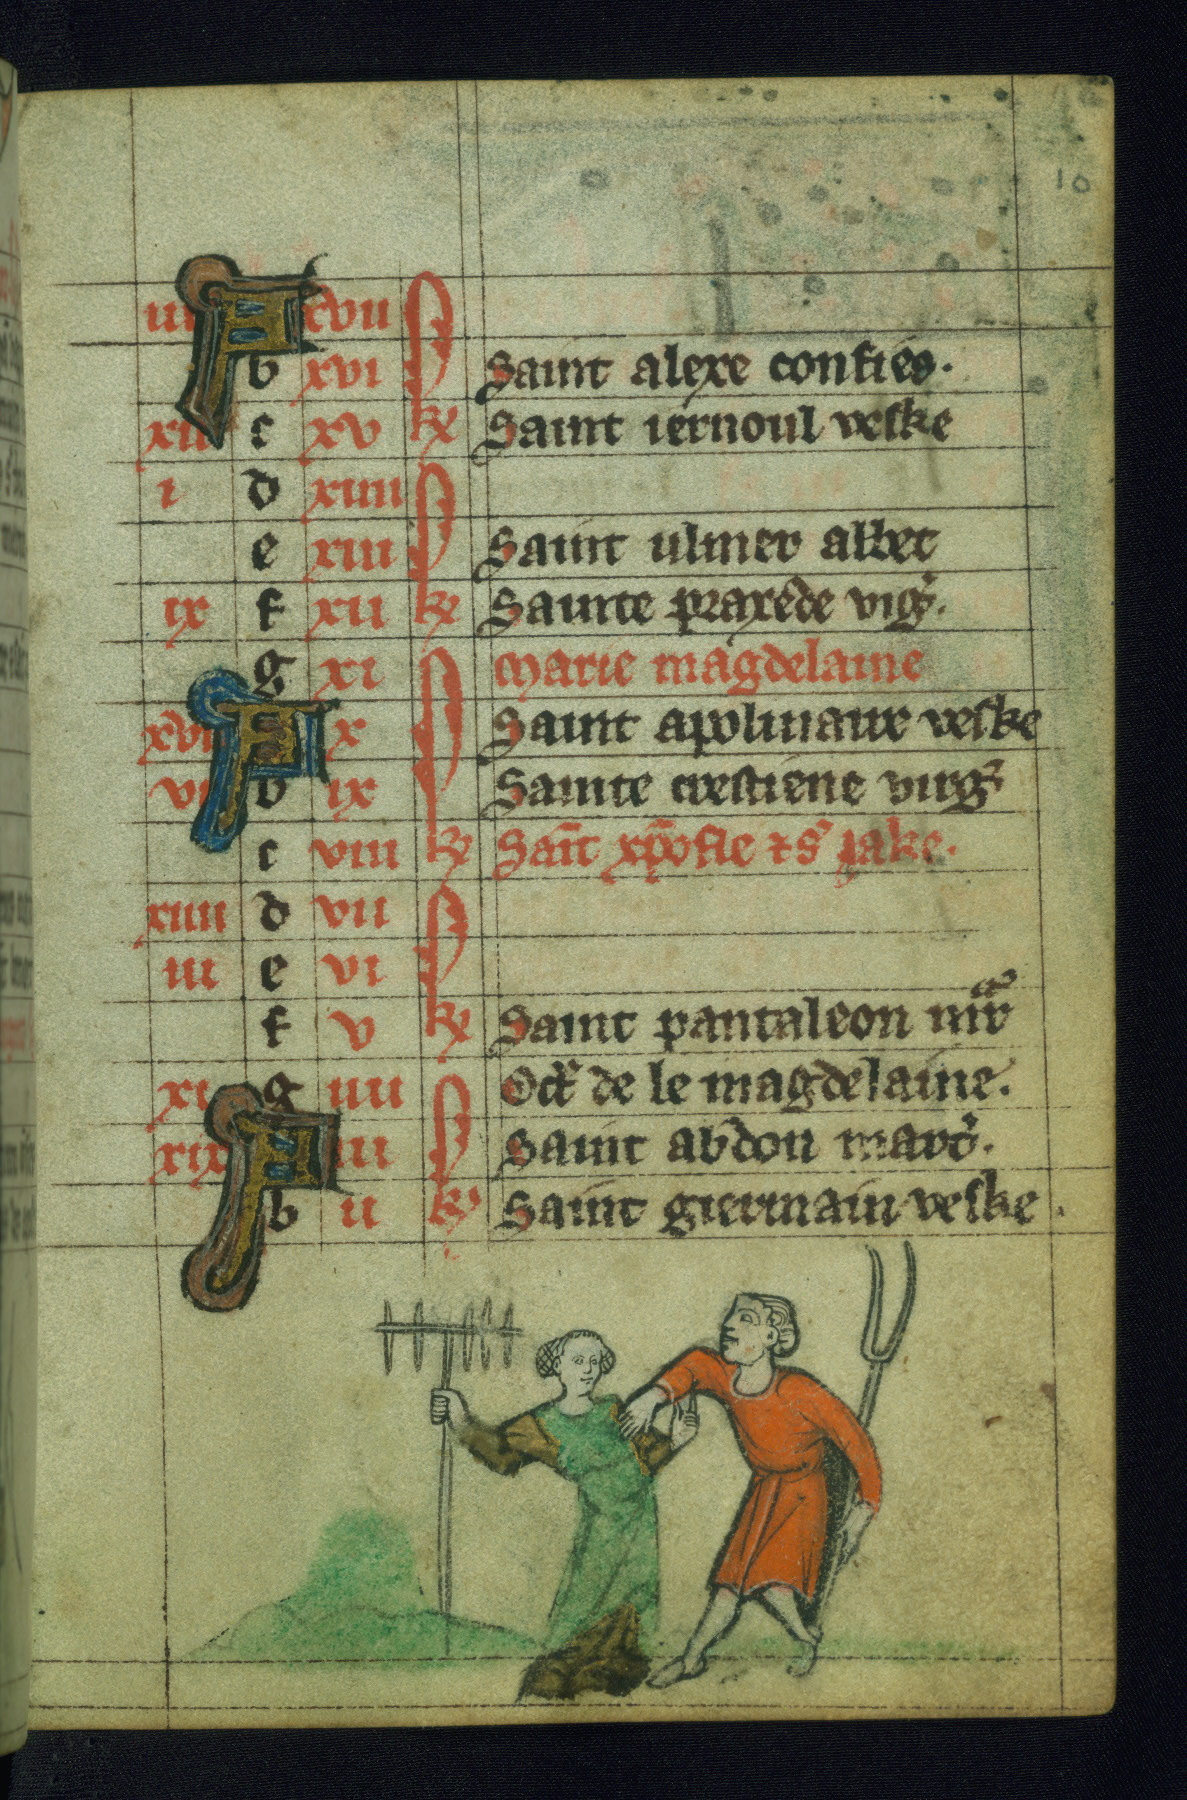 10
iiii A xvii
b xvi kł Saint alexe confiés.
xii c xv kł Saint iernoul veske
i d xiiii
e xiii Saint ulmer abbet
ix f xii kł Sainte praxede virg.
g xi Marie magdelaine
xvii A x Saint apolinaire veske
vi b ix Sainte crestiene virg
c viii kł Saīt xp̄ofle ⁊ s' Jake.
xiiii d vii
iii e vi
f v kł Saint pantaleon mr̄
xi g iiii Oct̄ de le magdelaine.
xix A iii Saint abdon mart'.
b ii kł Saint giermain veske.